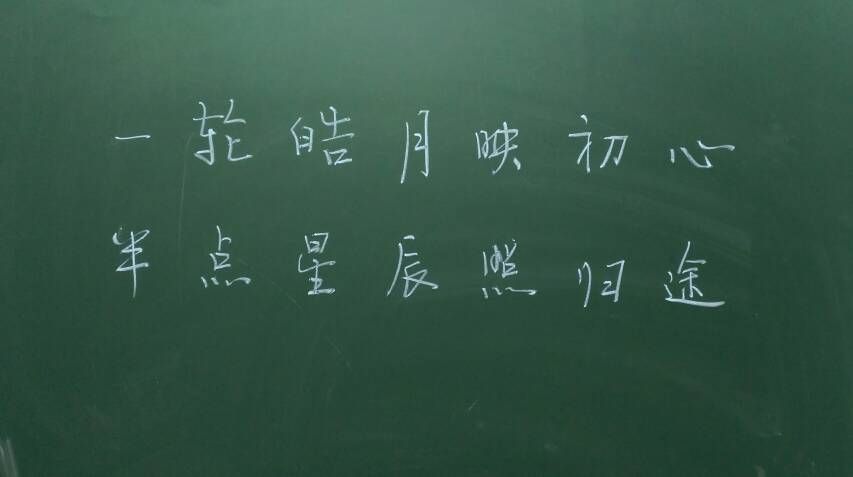 一轮皓月映初心
半点星辰照归途